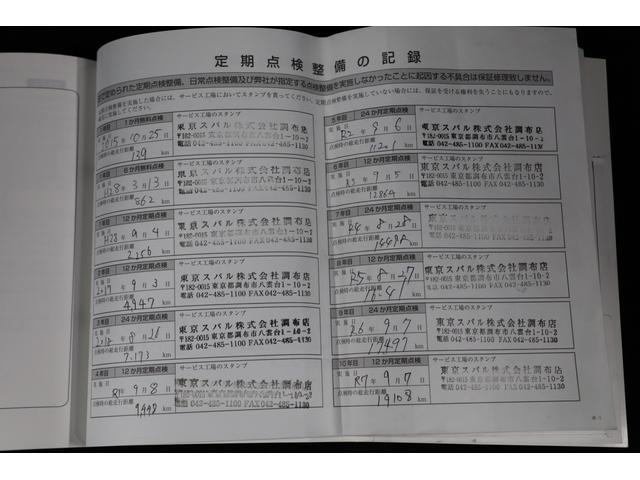 定期点検整備の記録
定期点検整備、日常点検整備及び弊社が指定する点検整備を実施しなかったことに起因する不具合は保証修理致しません。
1か月無料点検
サービス工場のスタンプ
2015年10月25日
点検時の総走行距離
139 km
東京スバル株式会社調布店
〒182-0015 東京都調布市八雲台1-10-2
電話 042-485-1100 FAX 042-485-1130
6か月無料点検
サービス工場のスタンプ
H28年3月13日
点検時の総走行距離
862 km
東京スバル株式会社調布店
〒182-0015 東京都調布市八雲台1-10-2
電話 042-485-1100 FAX 042-485-1130
12か月定期点検
サービス工場のスタンプ
H28年9月4日
点検時の総走行距離
2256 km
東京スバル株式会社調布店
〒182-0015 東京都調布市八雲台1-10-2
電話 042-485-1100 FAX 042-485-1130
2年目 12か月定期点検
サービス工場のスタンプ
2017年9月3日
点検時の総走行距離
4947 km
東京スバル株式会社調布店
〒182-0015 東京都調布市八雲台1-10-2
電話 042-485-1100 FAX 042-485-1130
3年目 24か月定期点検
サービス工場のスタンプ
8月26日
点検時の総走行距離
7173 km
東京スバル株式会社調布店
〒182-0015 東京都調布市八雲台1-10-2
電話 042-485-1100 FAX 042-485-1130
4年目 12か月定期点検
サービス工場のスタンプ
R1年9月8日
点検時の総走行距離
9448 km
東京スバル株式会社調布店
〒182-0015 東京都調布市八雲台1-10-2
電話 042-485-1100 FAX 042-485-1130
5年目 24か月定期点検
サービス工場のスタンプ
R2年9月6日
点検時の総走行距離
11201 km
東京スバル株式会社調布店
〒182-0015 東京都調布市八雲台1-10-2
電話 042-485-1100 FAX 042-485-1130
6年目 12か月定期点検
サービス工場のスタンプ
R3年9月5日
点検時の総走行距離
12864 km
東京スバル株式会社調布店
〒182-0015 東京都調布市八雲台1-10-2
電話 042-485-1100 FAX 042-485-1130
7年目 24か月定期点検
サービス工場のスタンプ
R4年8月28日
点検時の総走行距離
km
東京スバル株式会社調布店
〒182-0015 東京都調布市八雲台1-10-2
電話 042-485-1100 FAX 042-485-1130
8年目 12か月定期点検
サービス工場のスタンプ
R5年8月27日
点検時の総走行距離
km
東京スバル株式会社調布店
〒182-0015 東京都調布市八雲台1-10-2
電話 042-485-1100 FAX 042-485-1130
9年目 24か月定期点検
サービス工場のスタンプ
26年9月7日
点検時の総走行距離
17497 km
東京スバル株式会社調布店
〒182-0015 東京都調布市八雲台1-10-2
電話 042-485-1100 FAX 042-485-1130
10年目 12か月定期点検
サービス工場のスタンプ
R7年9月7日
点検時の総走行距離
19108 km
東京スバル株式会社調布店
〒182-0015 東京都調布市八雲台1-10-2
電話 042-485-1100 FAX 042-485-1130